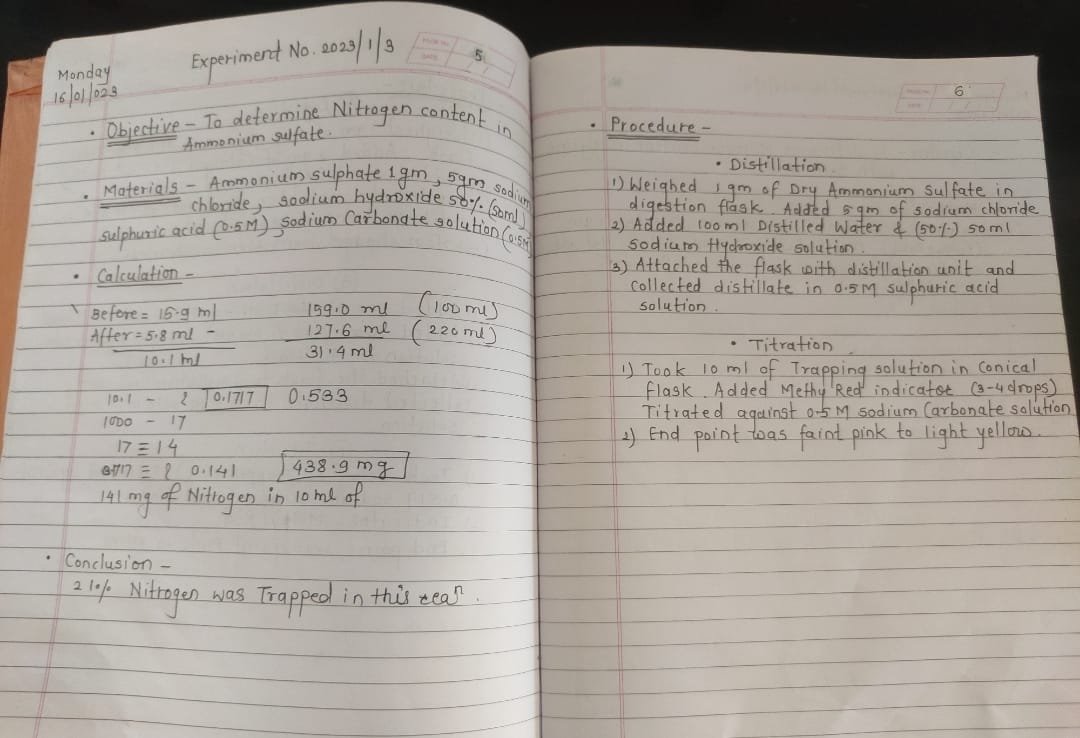 Experiment No. 2023/1/3
PAGE No.
DATE
5
Monday
16/01/023
• Objective - To determine Nitrogen content in
Ammonium sulfate.
• Materials - Ammonium sulphate 1gm, 5gm sodium
chloride, sodium hydroxide 50% (50ml)
sulphuric acid (0.5M), sodium Carbonate solution (0.5M
• Calculation -
Before = 15.9 ml 159.0 ml (100 ml)
After = 5.8 ml - 127.6 ml (220 ml)
10.1 ml 31.4 ml
10.1 - ? 0.1717 0.533
1000 - 17
17 ≡ 14
≡ ? 0.141 438.9 mg
141 mg of Nitrogen in 10 ml of
• Conclusion -
21% Nitrogen was Trapped in this
PAGE No.
DATE
6
• Procedure -
• Distillation
1) Weighed 1 gm of Dry Ammonium Sulfate in
digestion flask. Added 5 gm of sodium chloride
2) Added 100 ml Distilled Water & (50%) 50 ml
sodium Hydroxide solution.
3) Attached the flask with distillation unit and
collected distillate in 0.5 M sulphuric acid
solution.
• Titration
1) Took 10 ml of Trapping solution in Conical
flask. Added Methy Red indicator (3-4 drops)
Titrated against 0.5 M sodium Carbonate solution
2) End point was faint pink to light yellow.